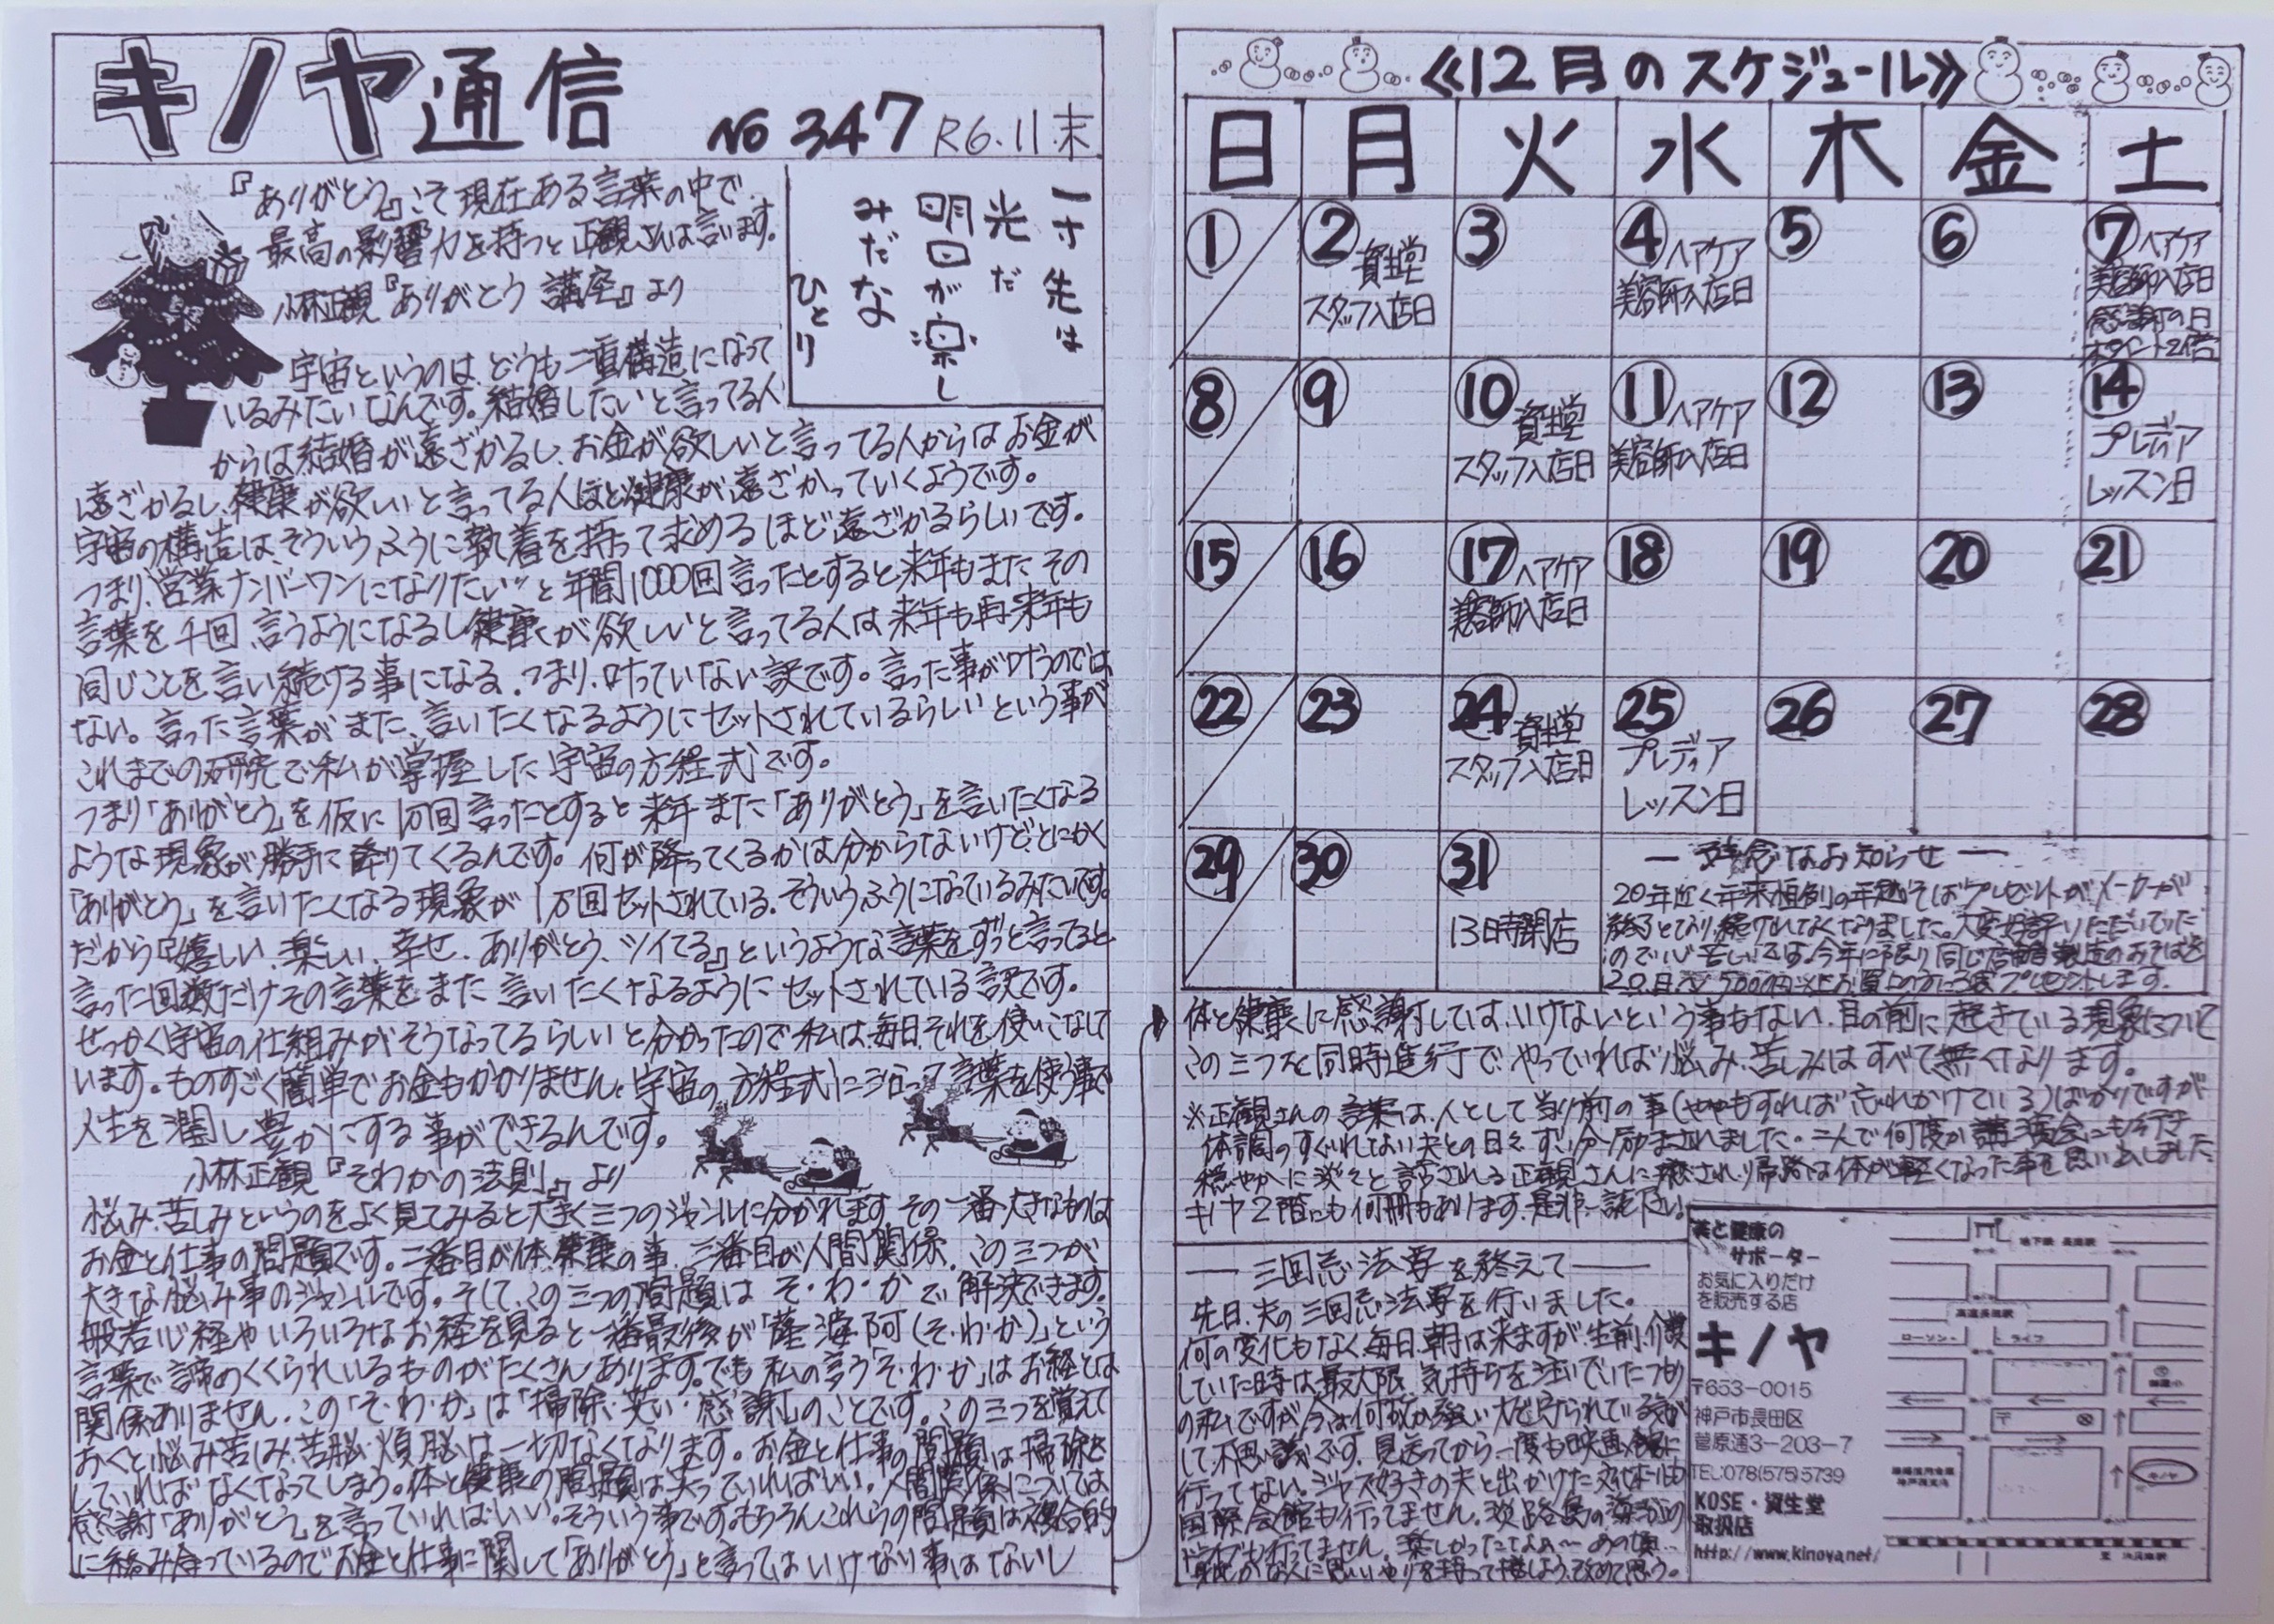 キノヤ通信 No 347 R6.11.末
『ありがとう』こそ現在ある言葉の中で
最高の影響力を持つと正観さんは言います。
小林正観『ありがとう講座』より
一寸先は
光だ
明日が楽し
みだな
ひとり
宇宙というのは、どうも二重構造になって
いるみたいなんです。結婚したいと言ってる人
からは結婚が遠ざかるし、お金が欲しいと言ってる人からはお金が
遠ざかるし、健康が欲しいと言ってる人ほど健康が遠ざかっていくようです。
宇宙の構造は、そういうふうに執着を持って求めるほど遠ざかるらしいです。
つまり、営業ナンバーワンになりたい〃と年間1000回言ったとすると来年もまたその
言葉を千回、言うようになるし健康が欲しいと言ってる人は来年も再来年も
同じことを言い続ける事になる、つまり、叶っていない訳です。言った事が叶うのでは
ない。言った言葉がまた、言いたくなるようにセットされているらしいという事が
これまでの研究で私が掌握した宇宙の方程式です。
つまり「ありがとう」を仮に1万回言ったとすると来年また「ありがとう」を言いたくなる
ような現象が勝手に降りてくるんです。何が降ってくるかは分からないけど、とにかく
「ありがとう」を言いたくなる現象が1万回セットされている。そういうふうになっているみたいです。
だから『嬉しい、楽しい、幸せ、ありがとう、ツイてる』というような言葉をずっと言ってると
言った回数だけその言葉をまた言いたくなるようにセットされている訳です。
せっかく宇宙の仕組みがそうなってるらしいと分かったので私は、毎日、それを使いこなして
います。ものすごく簡単でお金もかかりません。宇宙の方程式に沿って言葉を使う事で
人生を潤し豊かにする事ができるんです。
小林正観『そわかの法則』より
悩み、苦しみというのをよく見てみると大きく三つのジャンルに分かれます。その一番大きなものは
お金と仕事の問題です。二番目が体、健康の事、三番目が人間関係、この三つが
大きな悩み事のジャンルです。そして、この三つの問題はそ・わ・かで解決できます。
般若心経やいろいろなお経を見ると一番最後が「薩婆訶(そ・わ・か)」という
言葉で締めくくられいるものがたくさんあります。でも私の言う「そ・わ・か」はお経とは
関係ありません。この「そ・わ・か」は「掃除・笑い・感謝」のことです。この三つを覚えて
おくと悩み苦しみ、苦脳、煩脳は一切なくなります。お金と仕事の問題は掃除を
していればなくなってしまう。体と健康の問題は笑っていればいい。人間関係については
感謝「ありがとう」を言っていればいい。そういう事です。もちろんこれらの問題は複合的
に絡み合っているのでお金と仕事に関して「ありがとう」と言ってはいけない事はないし
《12月のスケジュール》
日 月 火 水 木 金 土
① ② 資生堂 スタッフ入店日 ③ ④ ヘアケア 美容師入店日 ⑤ ⑥ ⑦ ヘアケア 美容師入店日 感謝の日 ポイント2倍
⑧ ⑨ ⑩ 資生堂 スタッフ入店日 ⑪ ヘアケア 美容師入店日 ⑫ ⑬ ⑭ プレディア レッスン日
⑮ ⑯ ⑰ ヘアケア 美容師入店日 ⑱ ⑲ ⑳ ㉑
㉒ ㉓ ㉔ 資生堂 スタッフ入店日 ㉕ プレディア レッスン日 ㉖ ㉗ ㉘
㉙ ㉚ ㉛ 13日時閉店
― 残念なお知らせ ―
20年近く年末恒例の年越そばプレゼントがメーカーが
終了となり、続けれなくなりました。大変好評いただいていた
ので心苦しいです。今年に限り同じ
体と健康に感謝しては、いけないという事もない。目の前に起きている現象について
この三つを同時進行で、やっていれば悩み、苦しみはすべて無くなります。
※正観さんの言葉は、人として当り前の事(ややもすれば忘れかけている)ばかりですが
体調のすぐれない夫との日々、ずい分励まされました。二人で何度か講演会にも行き
穏やかに淡々と話される正観さんに癒され、帰路は体が軽くなった事を思い出しました
キノヤ2階にも何冊もあります。是非一読下さい。
― 三回忌法要を終えて ―
先日、夫の三回忌法要を行いました。
何の変化もなく、毎日、朝は来ますが、生前、介護
していた時は最大限、気持ちを注いでいたつもり
の私ですが今は何故か強い力で守られている気が
して不思議です。見送ってから一度も映画館に
行ってない。ジャズ好きの夫と出かけた文化ホールも
国際会館も行ってません。淡路島の海沿いの
ドライブも行ってません。楽しかったなぁ〜あの頃…
身近な人に思いやりを持って接しよう、改めて思う。
美と健康の
サポーター
お気に入りだけ
を販売する店
キノヤ
〒653-0015
神戸市長田区
菅原通3-203-7
TEL:078(575)5739
KOSE・資生堂
取扱店
http://www.kinoya.net/
地下鉄 長田駅
高速長田駅
ローソン
ライフ
キノヤ